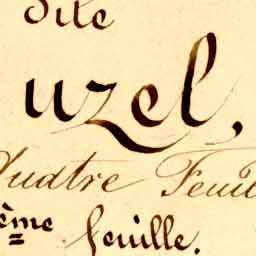 dite
uzel,
Quatre Feuil
ème feuille.